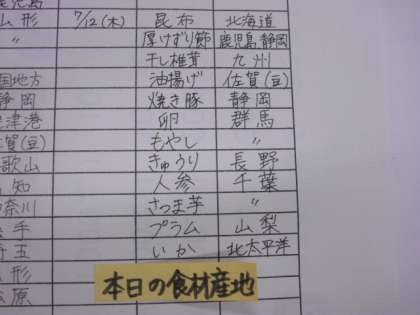 山形 7/12(木) 昆布 北海道
〃 厚けずり節 鹿児島 静岡
干し椎茸 九州
国地方 油揚げ 佐賀(豆)
静岡 焼き豚 静岡
津港 卵 群馬
賀(豆) もやし 〃
歌山 きゅうり 長野
知 人参 千葉
奈川 さつま芋 〃
手 プラム 山梨
玉 いか 北太平洋
形
原
本日の食材産地